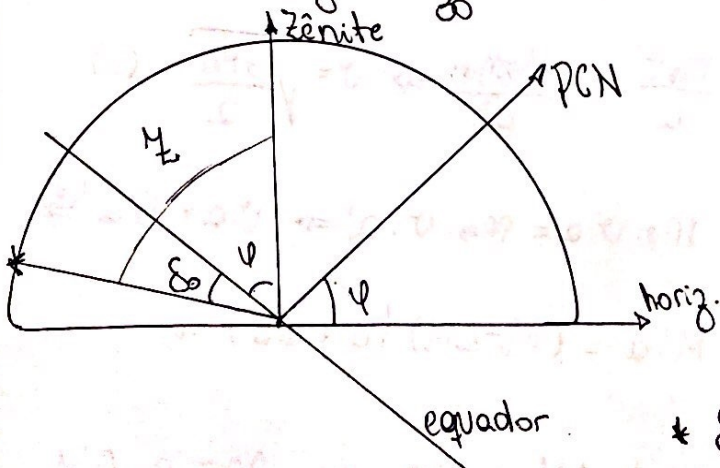 Zênite
PCN
z
φ
δ₀
φ
horiz.
equador.
*